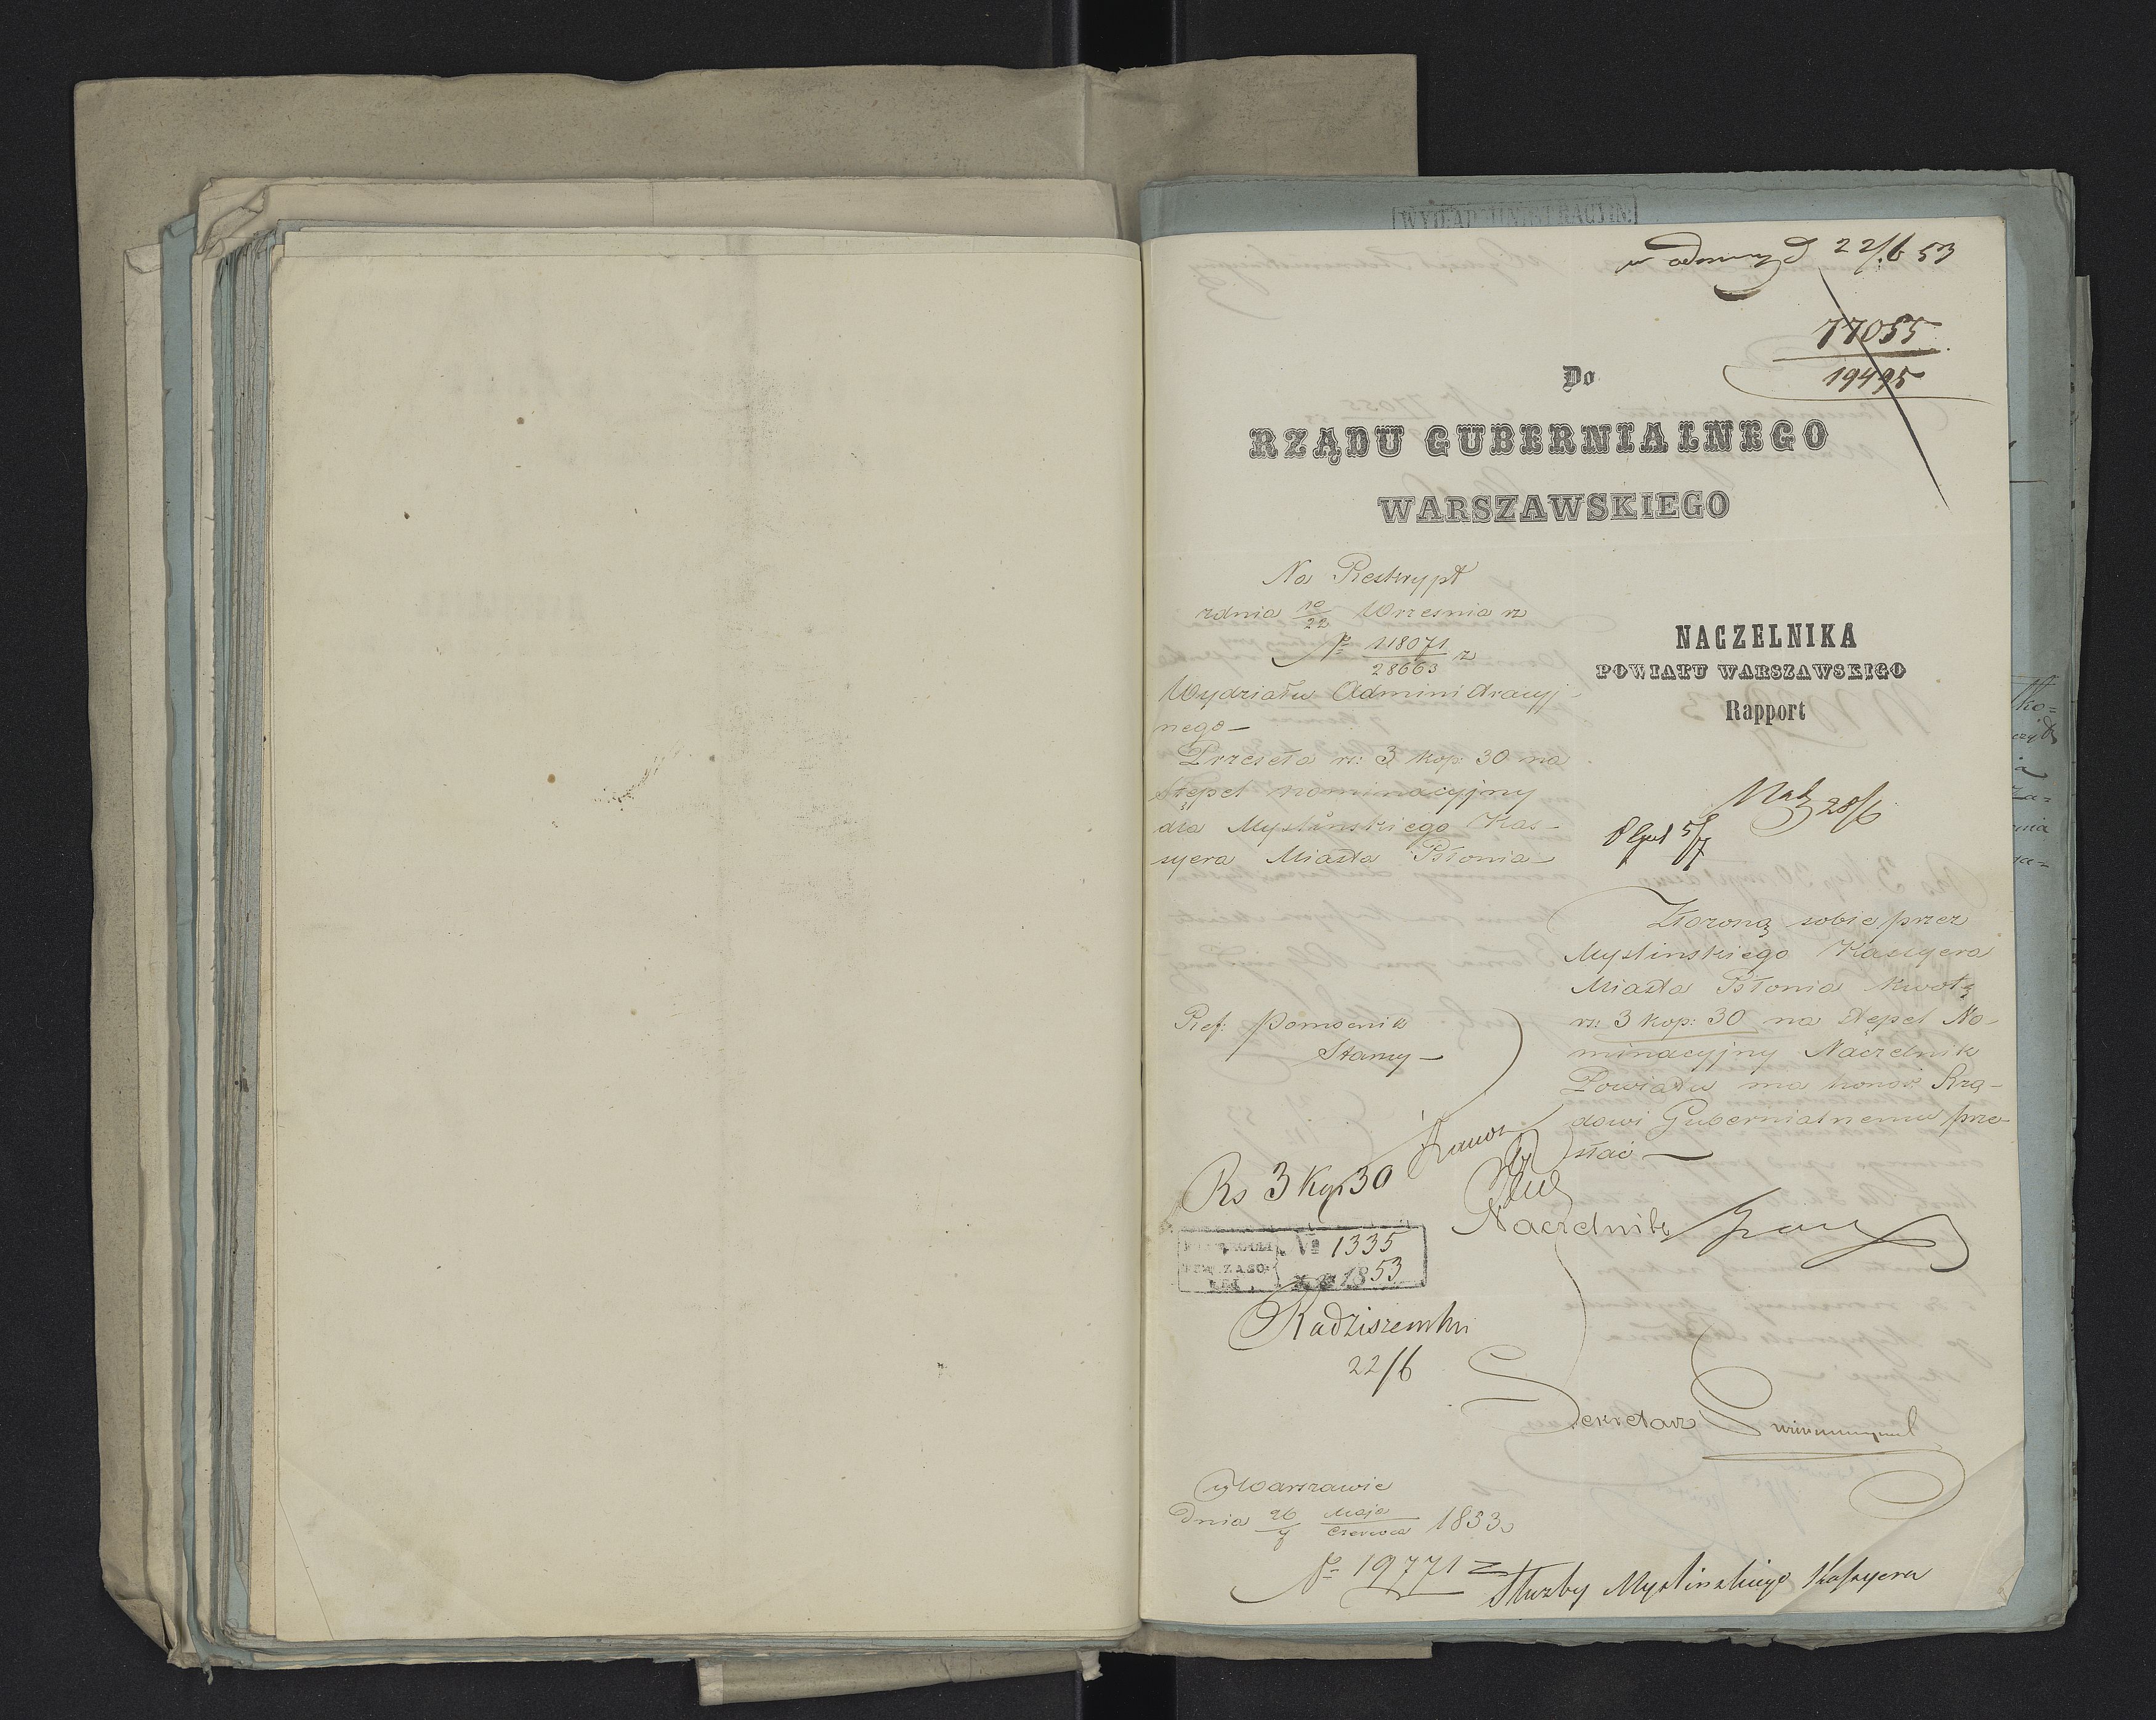 WYD. ADMINISTRACYJN.
22/6 53
77055
19495
Do
RZĄDU GUBERNIALNEGO
WARSZAWSKIEGO
Na Reskrypt
zdnia 10/22 Wrzesnia r
N 118071/28663 z
Wydziału Administracyj-
nego —
Przeseła rs: 3 kop: 30 na
stępel nominacyjny
dla Myslinskiego Kas-
syera Miasta Błonia —
NACZELNIKA
POWIATU WARSZAWSKIEGO
Rapport
28/6
5/7
Złożoną sobie przez
Myslinskiego Kassyera
Miasta Błonia kwotę
rs: 3 kop: 30 na stępel No-
minacyjny Naczelnik
Powiatu ma honor Rzą-
dowi Gubernialnemu prze-
słać —
Ref: Pomocnik
Rs 3 Kop 30
Naczelnik
No 1335
1853
Radziszewski
22/6
Sekretarz
w Warszawie
Dnia 26/7 Maja/Czerwca 1853
N 19771
Służby Myslinskiego Kassyera